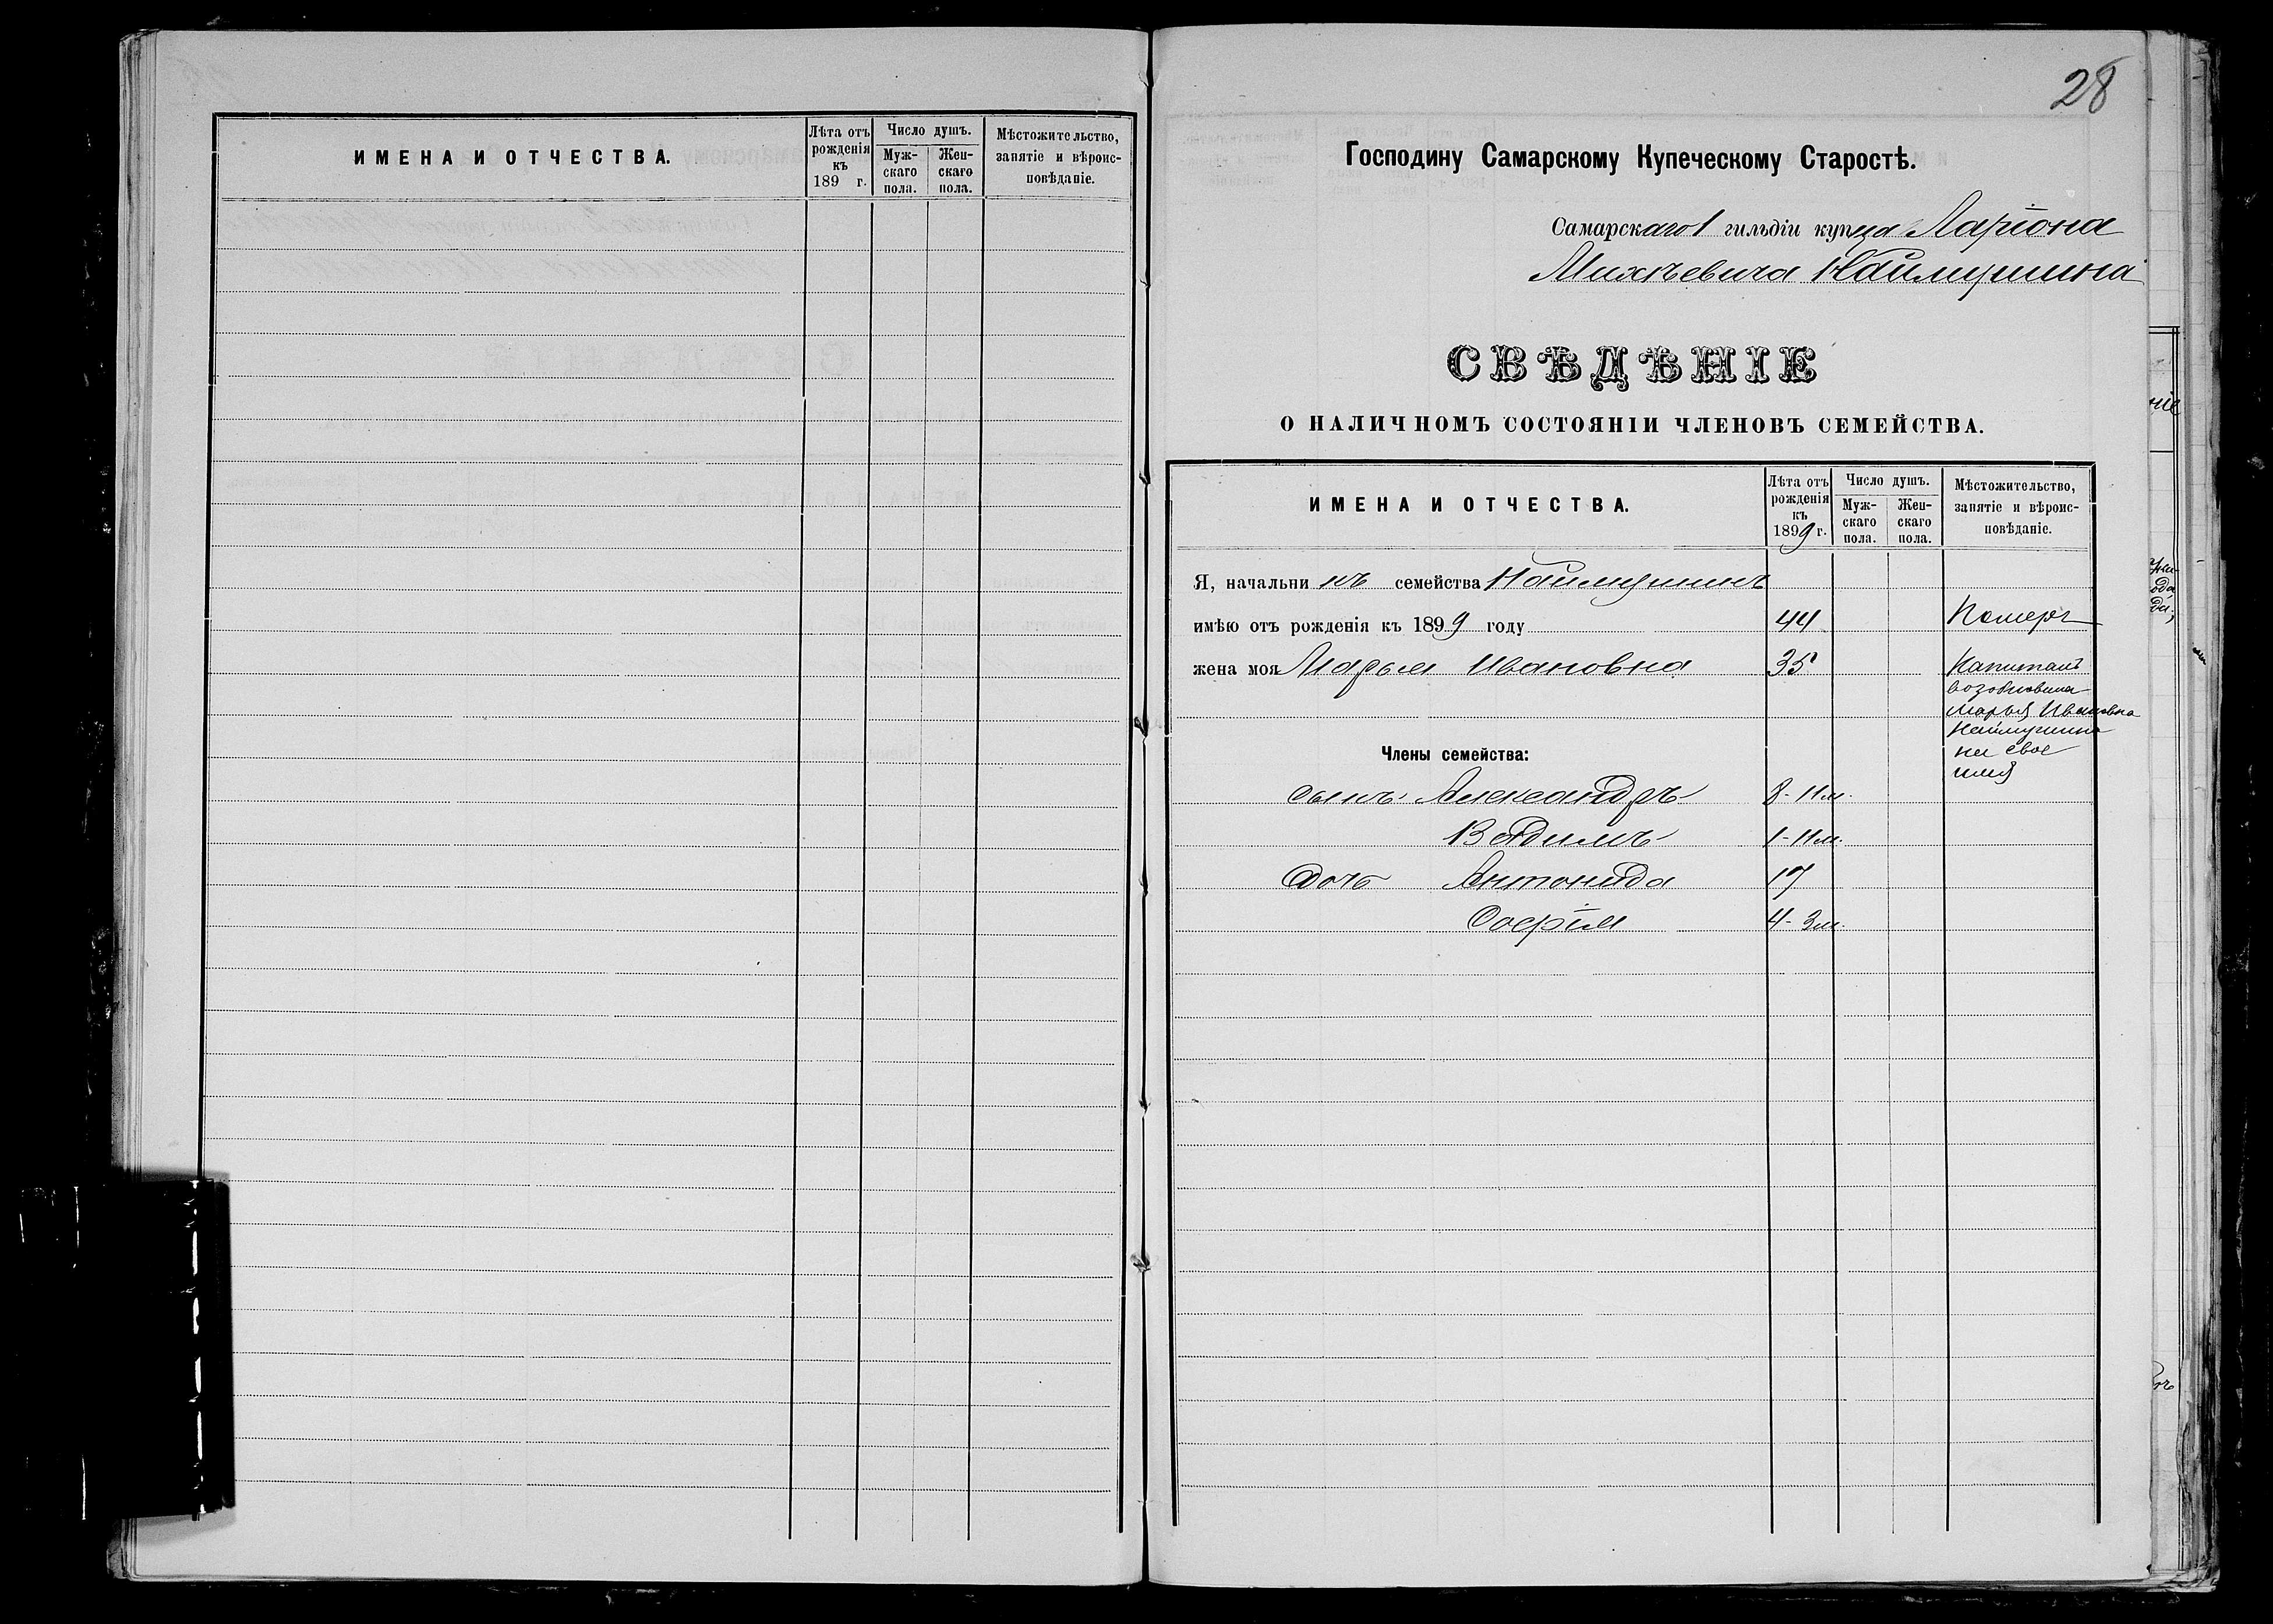 ИМЕНА И ОТЧЕСТВА.
Лѣта отъ
рожденія
къ
189 г.
Число душъ.
Муж-
скаго
пола.
Жен-
скаго
пола.
Мѣстожительство,
занятіе и вѣроис-
повѣданіе.
28
Господину Самарскому Купеческому Старостѣ.
Самарскаго 1 гильдіи купца Ларіона
Михѣевича Наймушина
СВѢДѢНІЕ
О НАЛИЧНОМЪ СОСТОЯНІИ ЧЛЕНОВЪ СЕМЕЙСТВА.
ИМЕНА И ОТЧЕСТВА.
Лѣта отъ
рожденія
къ
1899 г.
Число душъ.
Муж-
скаго
пола.
Жен-
скаго
пола.
Мѣстожительство,
занятіе и вѣроис-
повѣданіе.
Я, начальникъ семейства Наймушинъ
имѣю отъ рожденія къ 1899 году 44 Померъ
жена моя Марья Ивановна 35 Капиталъ
возобновила
Марья Ивановна
Наймушина
на свое
имя
Члены семейства:
сынъ Александръ 8-11м.
Вадимъ 1-11м.
дочь Антонида 17
Софія 4-3м.